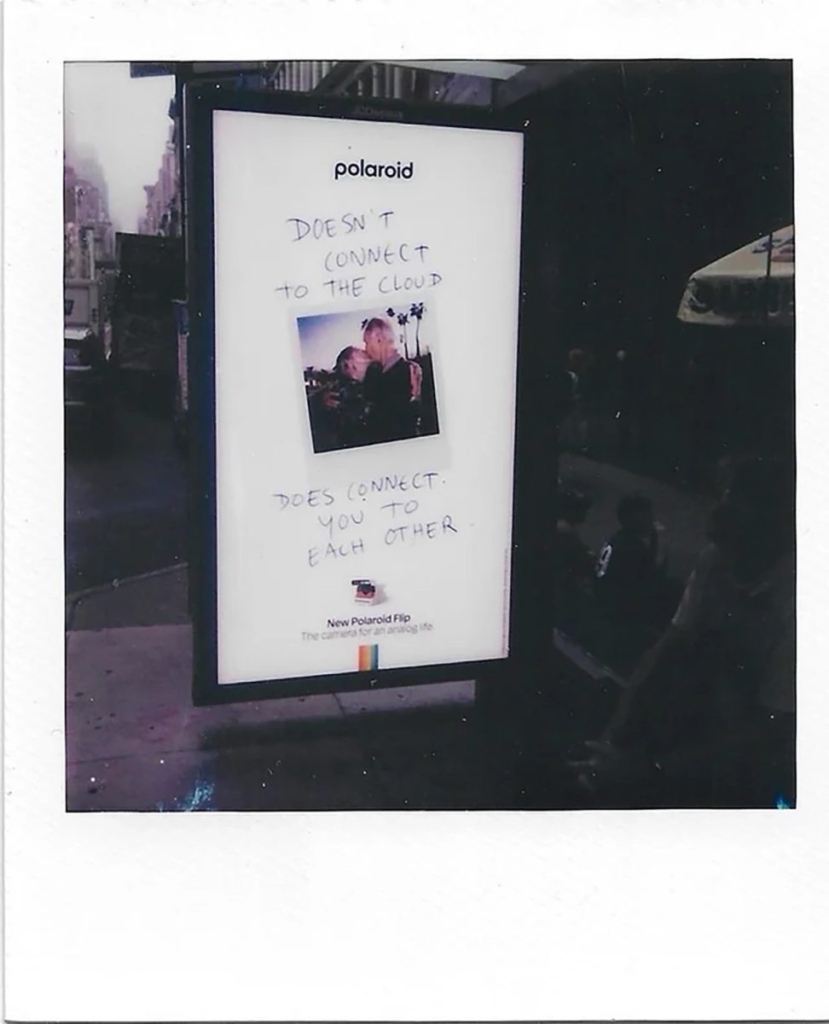 polaroid
DOESN'T
CONNECT
TO THE CLOUD
DOES CONNECT.
YOU TO
EACH OTHER.
New Polaroid Flip
The camera for an analog life
9